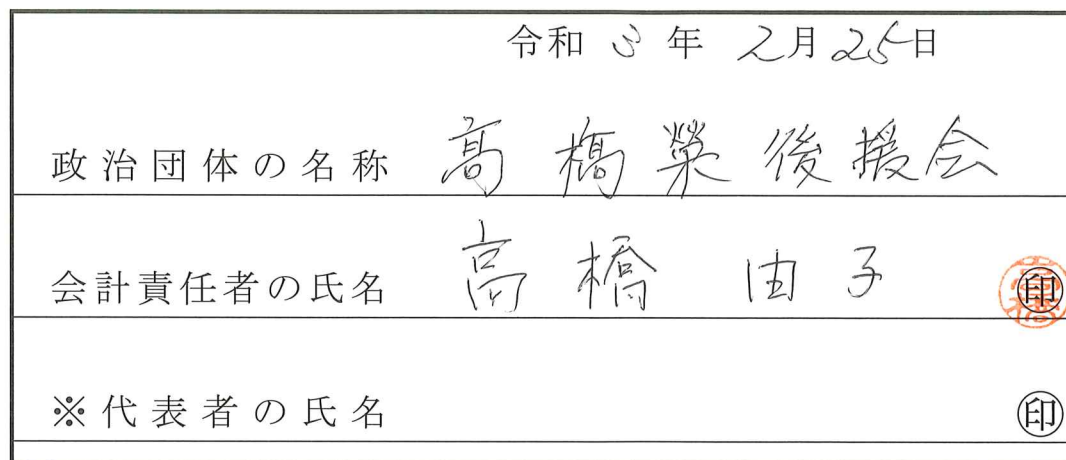 令和 3 年 2月25日
政治団体の名称 髙橋榮後援会
会計責任者の氏名 高橋 由子 ㊞
※代表者の氏名 ㊞